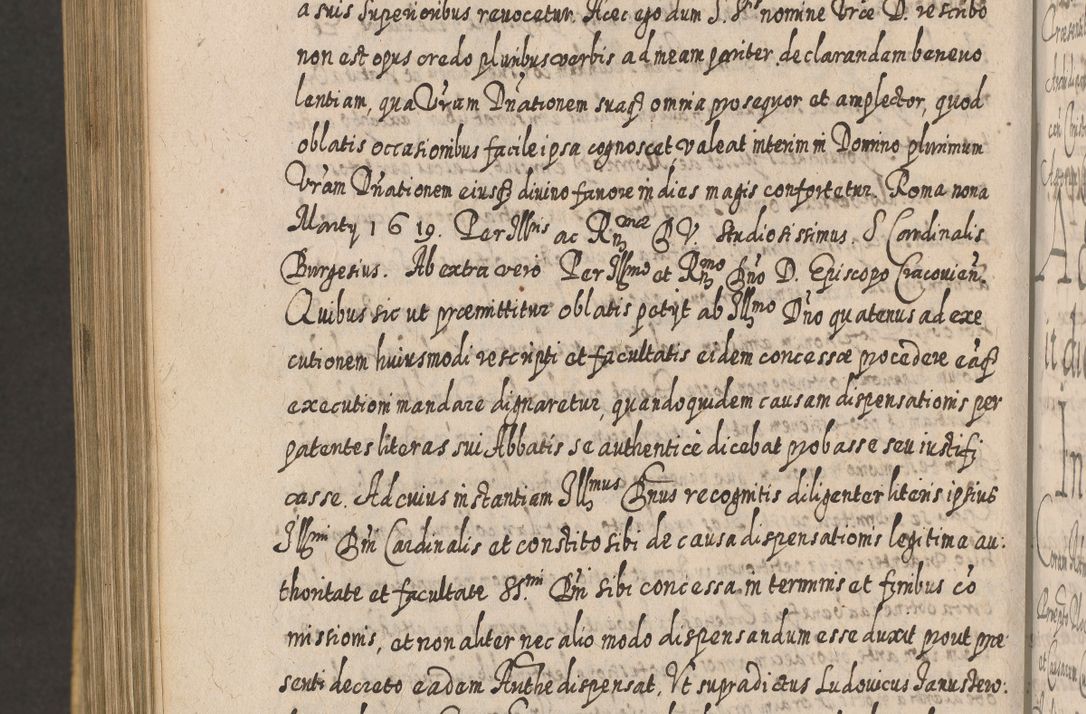 a suis Superioribus reuocetur. Haec ego dum S. Sris nomine Vrae D. rescribo
non est opus credo pluribus verbis ad meam pariter declarandam beneuo
lentiam, qua Vram Dnationem suaq3 omnia prosequor et amplector, quod
oblatis occasionibus facile ipsa cognoscet valeat interim in Domino plurimum
Vram Dnationem eiusq3 diuino fauore in dies magis confortetur. Roma nona
Martij 1619. Per Illris ac Rmae D V. studiosissimus. S Cardinalis
Burgesius. Ab extra vero Per Illmo et Rmo Dno D. Episcopo Cracouien.
Quibus sic ut praemittitur oblatis petijt ab Illmo Dno quatenus ad exe
cutionem huiusmodi rescripti et facultatis eidem concessae procedere eaq3
executioni mandare dignaretur, quandoquidem causam dispensationis per
patentes literas sui Abbatis se authenticè dicebat probasse seu iustifi
casse. Ad cuius instantiam Illmus Dnus recognitis diligenter literis ipsius
Illmi Dni Cardinalis et constito sibi de causa dispensationis legitima au:
thoritate et facultate SSmi Dni sibi concessa in terminis et finibus cō
missionis, et non aliter nec alio modo dispensandum esse duxit prout prae
senti decreto eadem Authe dispensat, Vt supradictus Ludouicus Ianustero: